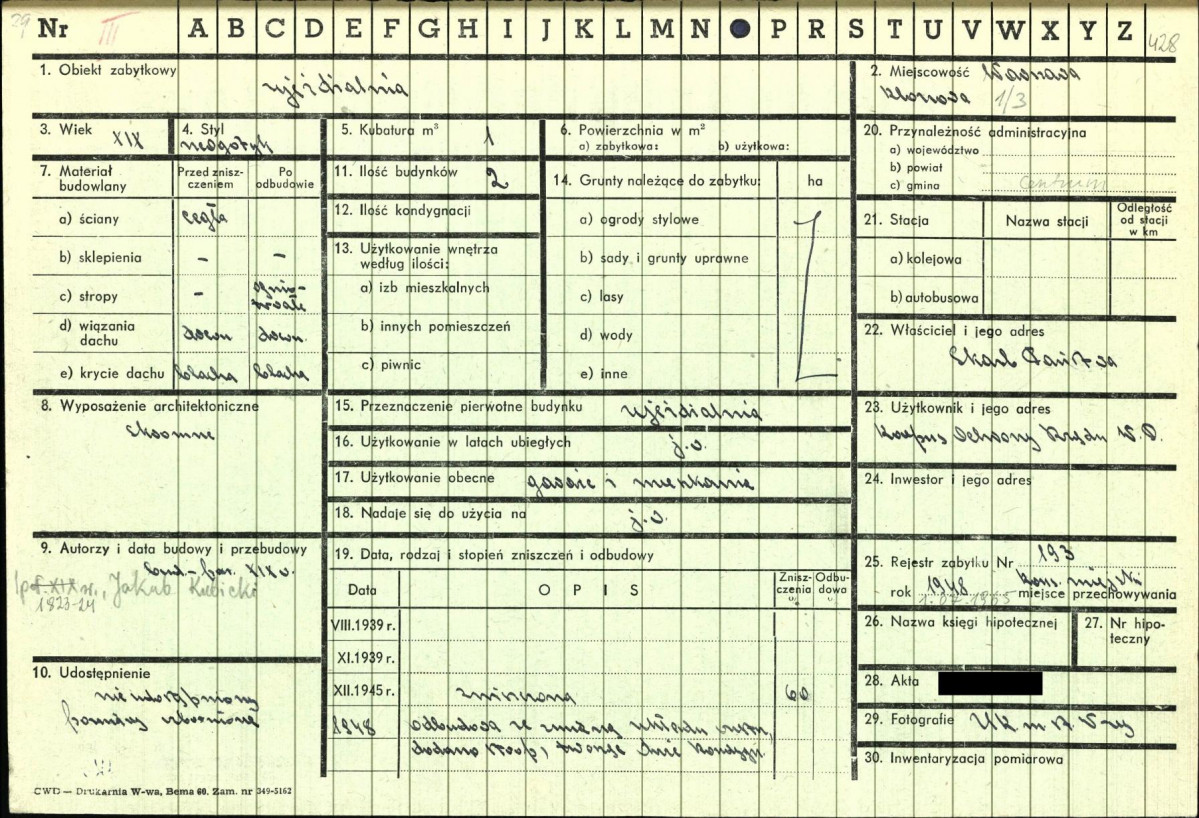 29 Nr III A B C D E F G H I J K L M N P R S T U V W X Y Z 428
1. Obiekt zabytkowy ujeżdżalnia
2. Miejscowość Warszawa
Klonowa 1/3
3. Wiek XIX
4. Styl neogotyk
5. Kubatura m³ 1
6. Powierzchnia w m²
a) zabytkowa: b) użytkowa:
7. Materiał budowlany
Przed zniszczeniem
Po odbudowie
a) ściany cegła
b) sklepienia - -
c) stropy - ogniotrwałe
d) wiązania dachu drewn drewn.
e) krycie dachu blacha blacha
8. Wyposażenie architektoniczne
skromne
9. Autorzy i data budowy i przebudowy
XIX w.
Jakub Kubicki
1823-24
10. Udostępnienie
nie udostępniony
CWD — Drukarnia W-wa, Bema 60. Zam. nr 349-5162
11. Ilość budynków 2
12. Ilość kondygnacji
13. Użytkowanie wnętrza
według ilości:
a) izb mieszkalnych
b) innych pomieszczeń
c) piwnic
14. Grunty należące do zabytku: ha
a) ogrody stylowe
b) sady i grunty uprawne
c) lasy
d) wody
e) inne
15. Przeznaczenie pierwotne budynku ujeżdżalnia
16. Użytkowanie w latach ubiegłych j.w.
17. Użytkowanie obecne garaże i mieszkania
18. Nadaje się do użycia na j.w.
19. Data, rodzaj i stopień zniszczeń i odbudowy
Data OPIS Zniszczenia % Odbudowa %
VIII.1939 r.
XI.1939 r.
XII.1945 r. zniszczona 60
1948 odbudowa ze zmianą układu wnętrz,
dodano strop, tworząc dwie kondygn.
20. Przynależność administracyjna
a) województwo
b) powiat
c) gmina Centrum
21. Stacja
Nazwa stacji
Odległość od stacji w km
a) kolejowa
b) autobusowa
22. Właściciel i jego adres
Skarb Państwa
23. Użytkownik i jego adres
Korpus Ochrony Rządu
24. Inwestor i jego adres
25. Rejestr zabytku Nr 193
rok 1948 kons. miejski
1.07.1965 miejsce przechowywania
26. Nazwa księgi hipotecznej
27. Nr hipoteczny
28. Akta
29. Fotografie
30. Inwentaryzacja pomiarowa